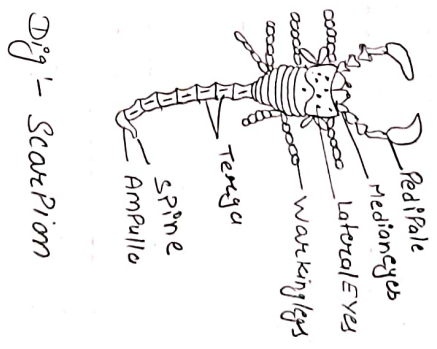 Pedipale
Medianeyes
Lateral Eyes
Warkinglegs
Terga
Spine
Ampulla
Dig:- Scarpion